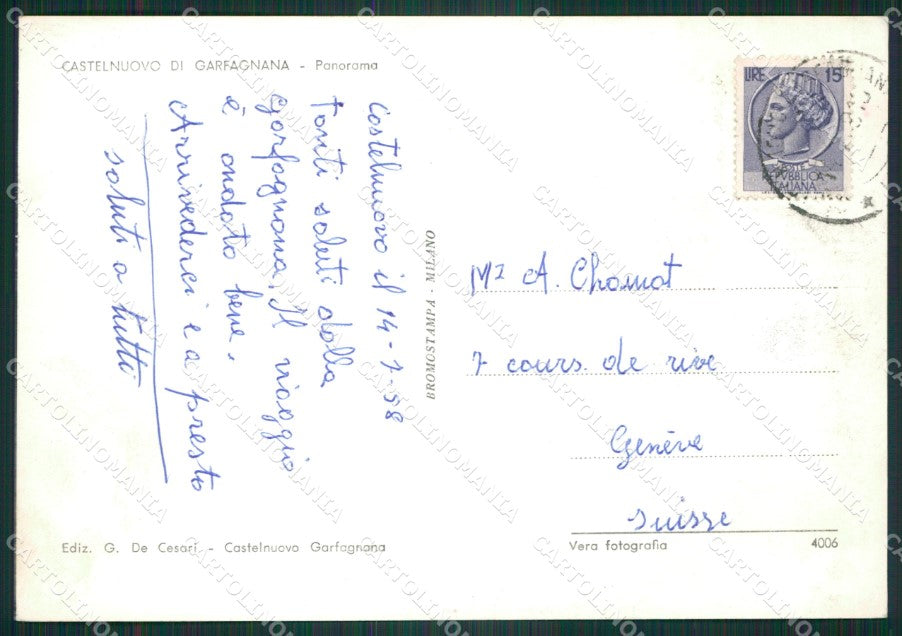 CASTELNUOVO DI GARFAGNANA - Panorama
Castelnuovo il 14-7-58
Tanti saluti dalla
Garfagnana, Il viaggio
è andato bene.
Arrivederci e a presto
saluti a tutti
BROMOSTAMPA - MILANO
LIRE 15
POSTE
REPVBBLICA
ITALIANA
Mr A. Chomat
7 cours. de rive
Genève
Suisse
Ediz. G. De Cesari - Castelnuovo Garfagnana
Vera fotografia
4006
CARTOLINOMANIA